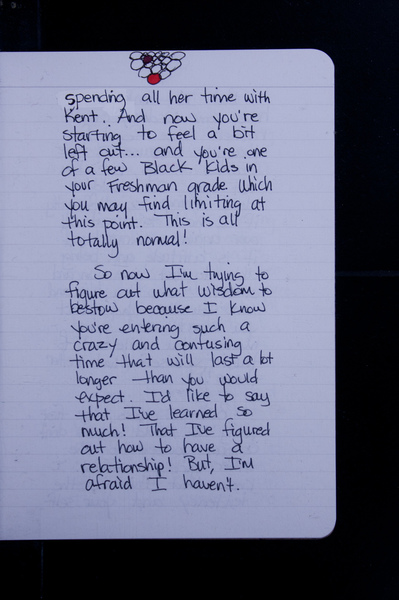 spending all her time with
Kent. And now you're
starting to feel a bit
left out... and you're one
of a few Black Kids in
your Freshman grade. Which
you may find limiting at
this point. This is all
totally normal!
So now I'm trying to
figure out what wisdom to
bestow because I know
you're entering such a
crazy and confusing
time that will last a lot
longer than you would
expect. I'd like to say
that I've learned so
much! That I've figured
out how to have a
relationship! But, I'm
afraid I haven't.